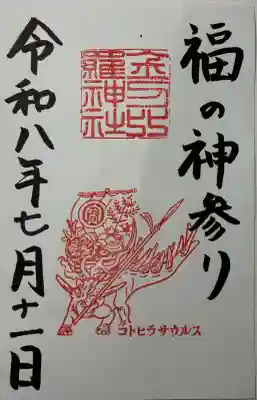 福の神参り
金刀比
羅神社
コトヒラサウルス
令和八年七月十一日